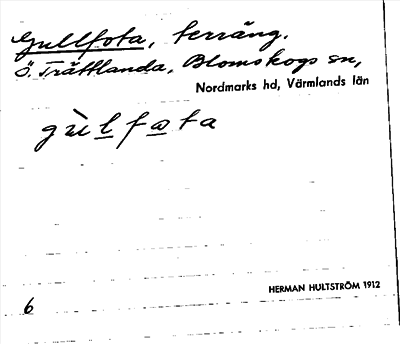 Gullfota, terräng.
Ö. Trättlanda, Blomskogs sn,
Nordmarks hd, Värmlands län
gùlfota
HERMAN HULTSTRÖM 1912
6